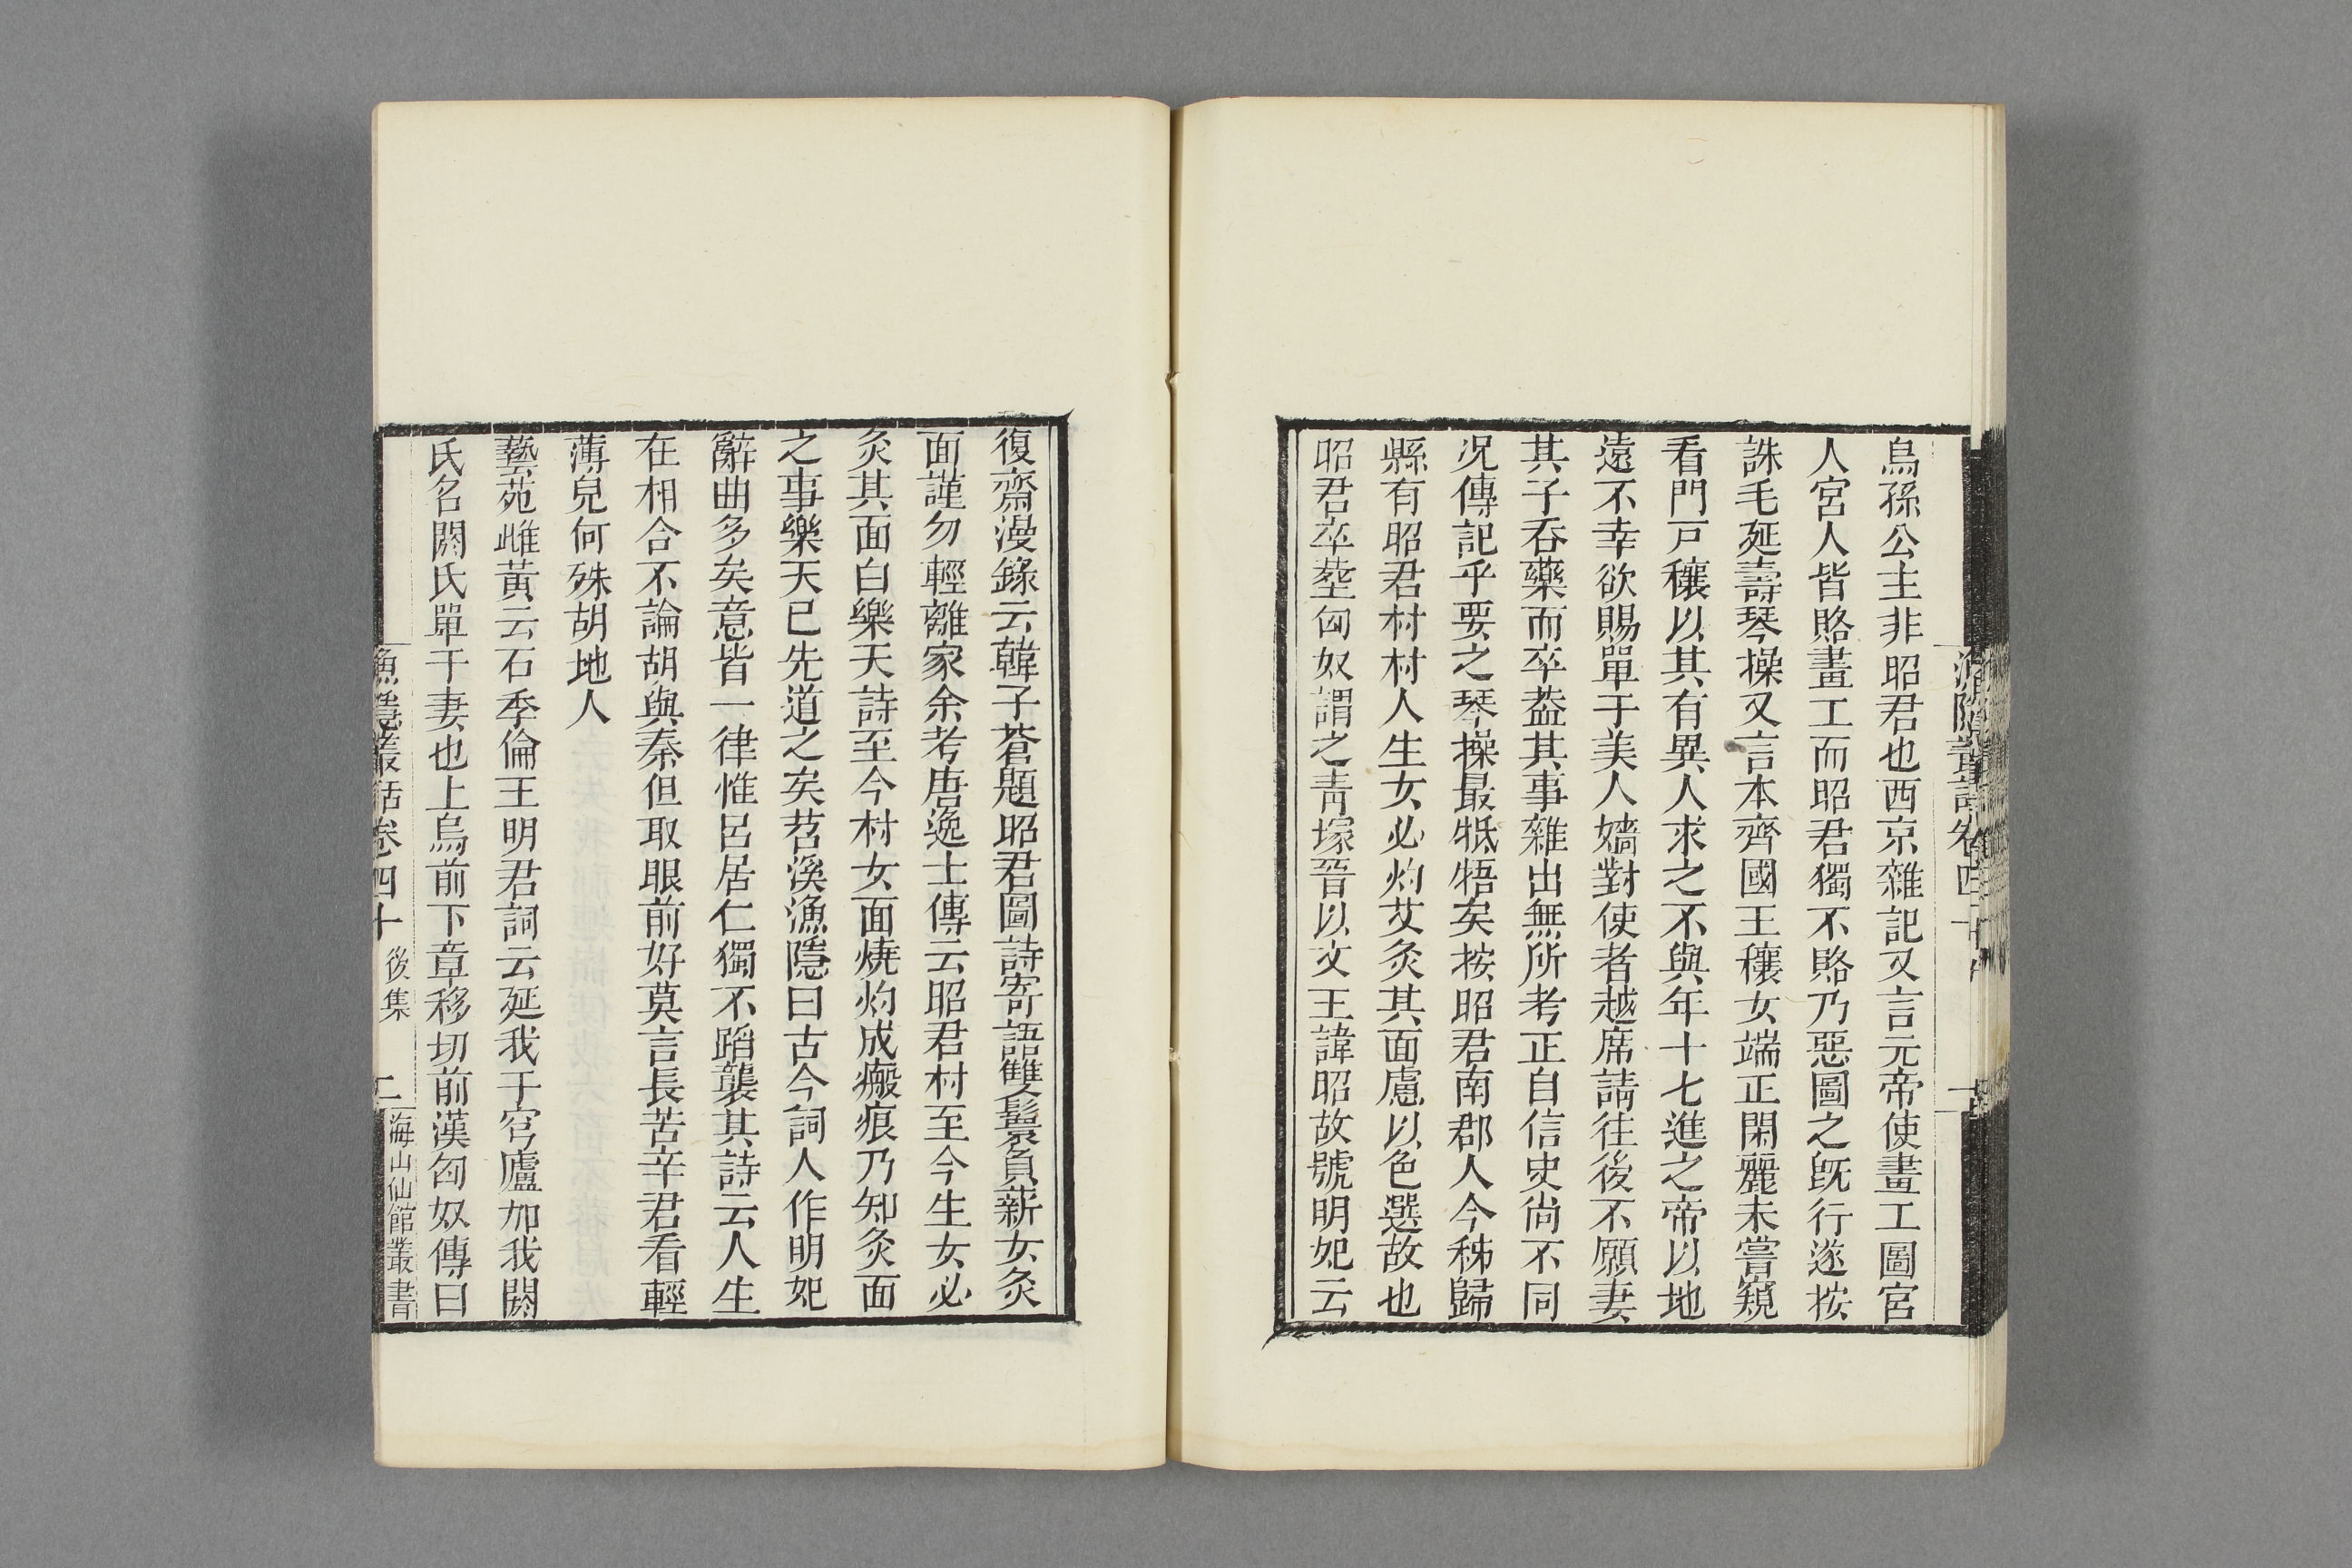 烏孫公主非昭君也西京雜記又言元帝使畫工圖宮
人宮人皆賂畫工而昭君獨不賂乃惡圖之既行遂按
誅毛延壽琴操又言本齊國王穰女端正閑麗未嘗窺
看門戸穰以其有異人求之不與年十七進之帝以地
遠不幸欲賜單于美人嬙對使者越席請往後不願妻
其子吞藥而卒葢其事雜出無所考正自信史尚不同
况傳記乎要之琴操最牴牾矣按昭君南郡人今秭歸
縣有昭君村村人生女必灼艾灸其面慮以色選故也
昭君卒塟匈奴謂之靑塚晉以文王諱昭故號明妃云
復齋漫錄云韓子蒼題昭君圖詩寄語雙鬟負薪女灸
面謹勿輕離家余考唐逸士傳云昭君村至今生女必
灸其面白樂天詩至今村女面燒灼成瘢痕乃知灸面
之事樂天已先道之矣苕溪漁隱曰古今詞人作明妃
辭曲多矣意皆一律惟呂居仁獨不蹈襲其詩云人生
在相合不論胡與秦但取眼前好莫言長苦辛君看輕
薄兒何殊胡地人
藝苑雌黃云石季倫王明君詞云延我于穹廬加我閼
氏名閼氏單于妻也上烏前下章移切前漢匈奴傳曰
漁隱叢話卷四十 後集 二 海山仙館叢書